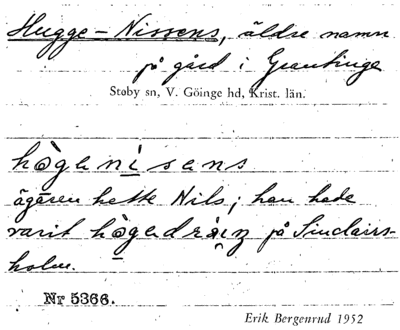 Hugge-Nissens, äldre namn
på gård i Grantinge
Støby sn, V. Göinge hd, Krist. län.
hògenisens
ägaren hette Nils; han hade
varit hògedräŋ på Sinclairs-
holm.
Nr 5366.
Erik Bergenrud 1952